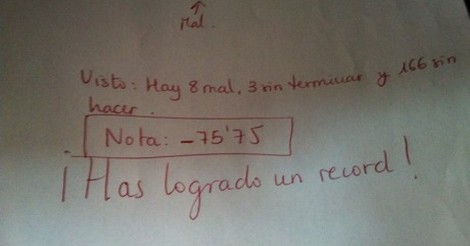 Mal.
Visto: Hay 8 mal, 3 sin terminar y 166 sin
hacer.
Nota: -75'75
¡Has logrado un record!